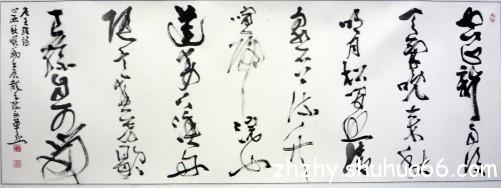 空山新雨後
天氣晚來秋
明月松間照清
泉石上流竹
喧歸浣女
蓮動下漁舟
随意春芳歇
王孫自可留
zhzhy.shuhua66.com